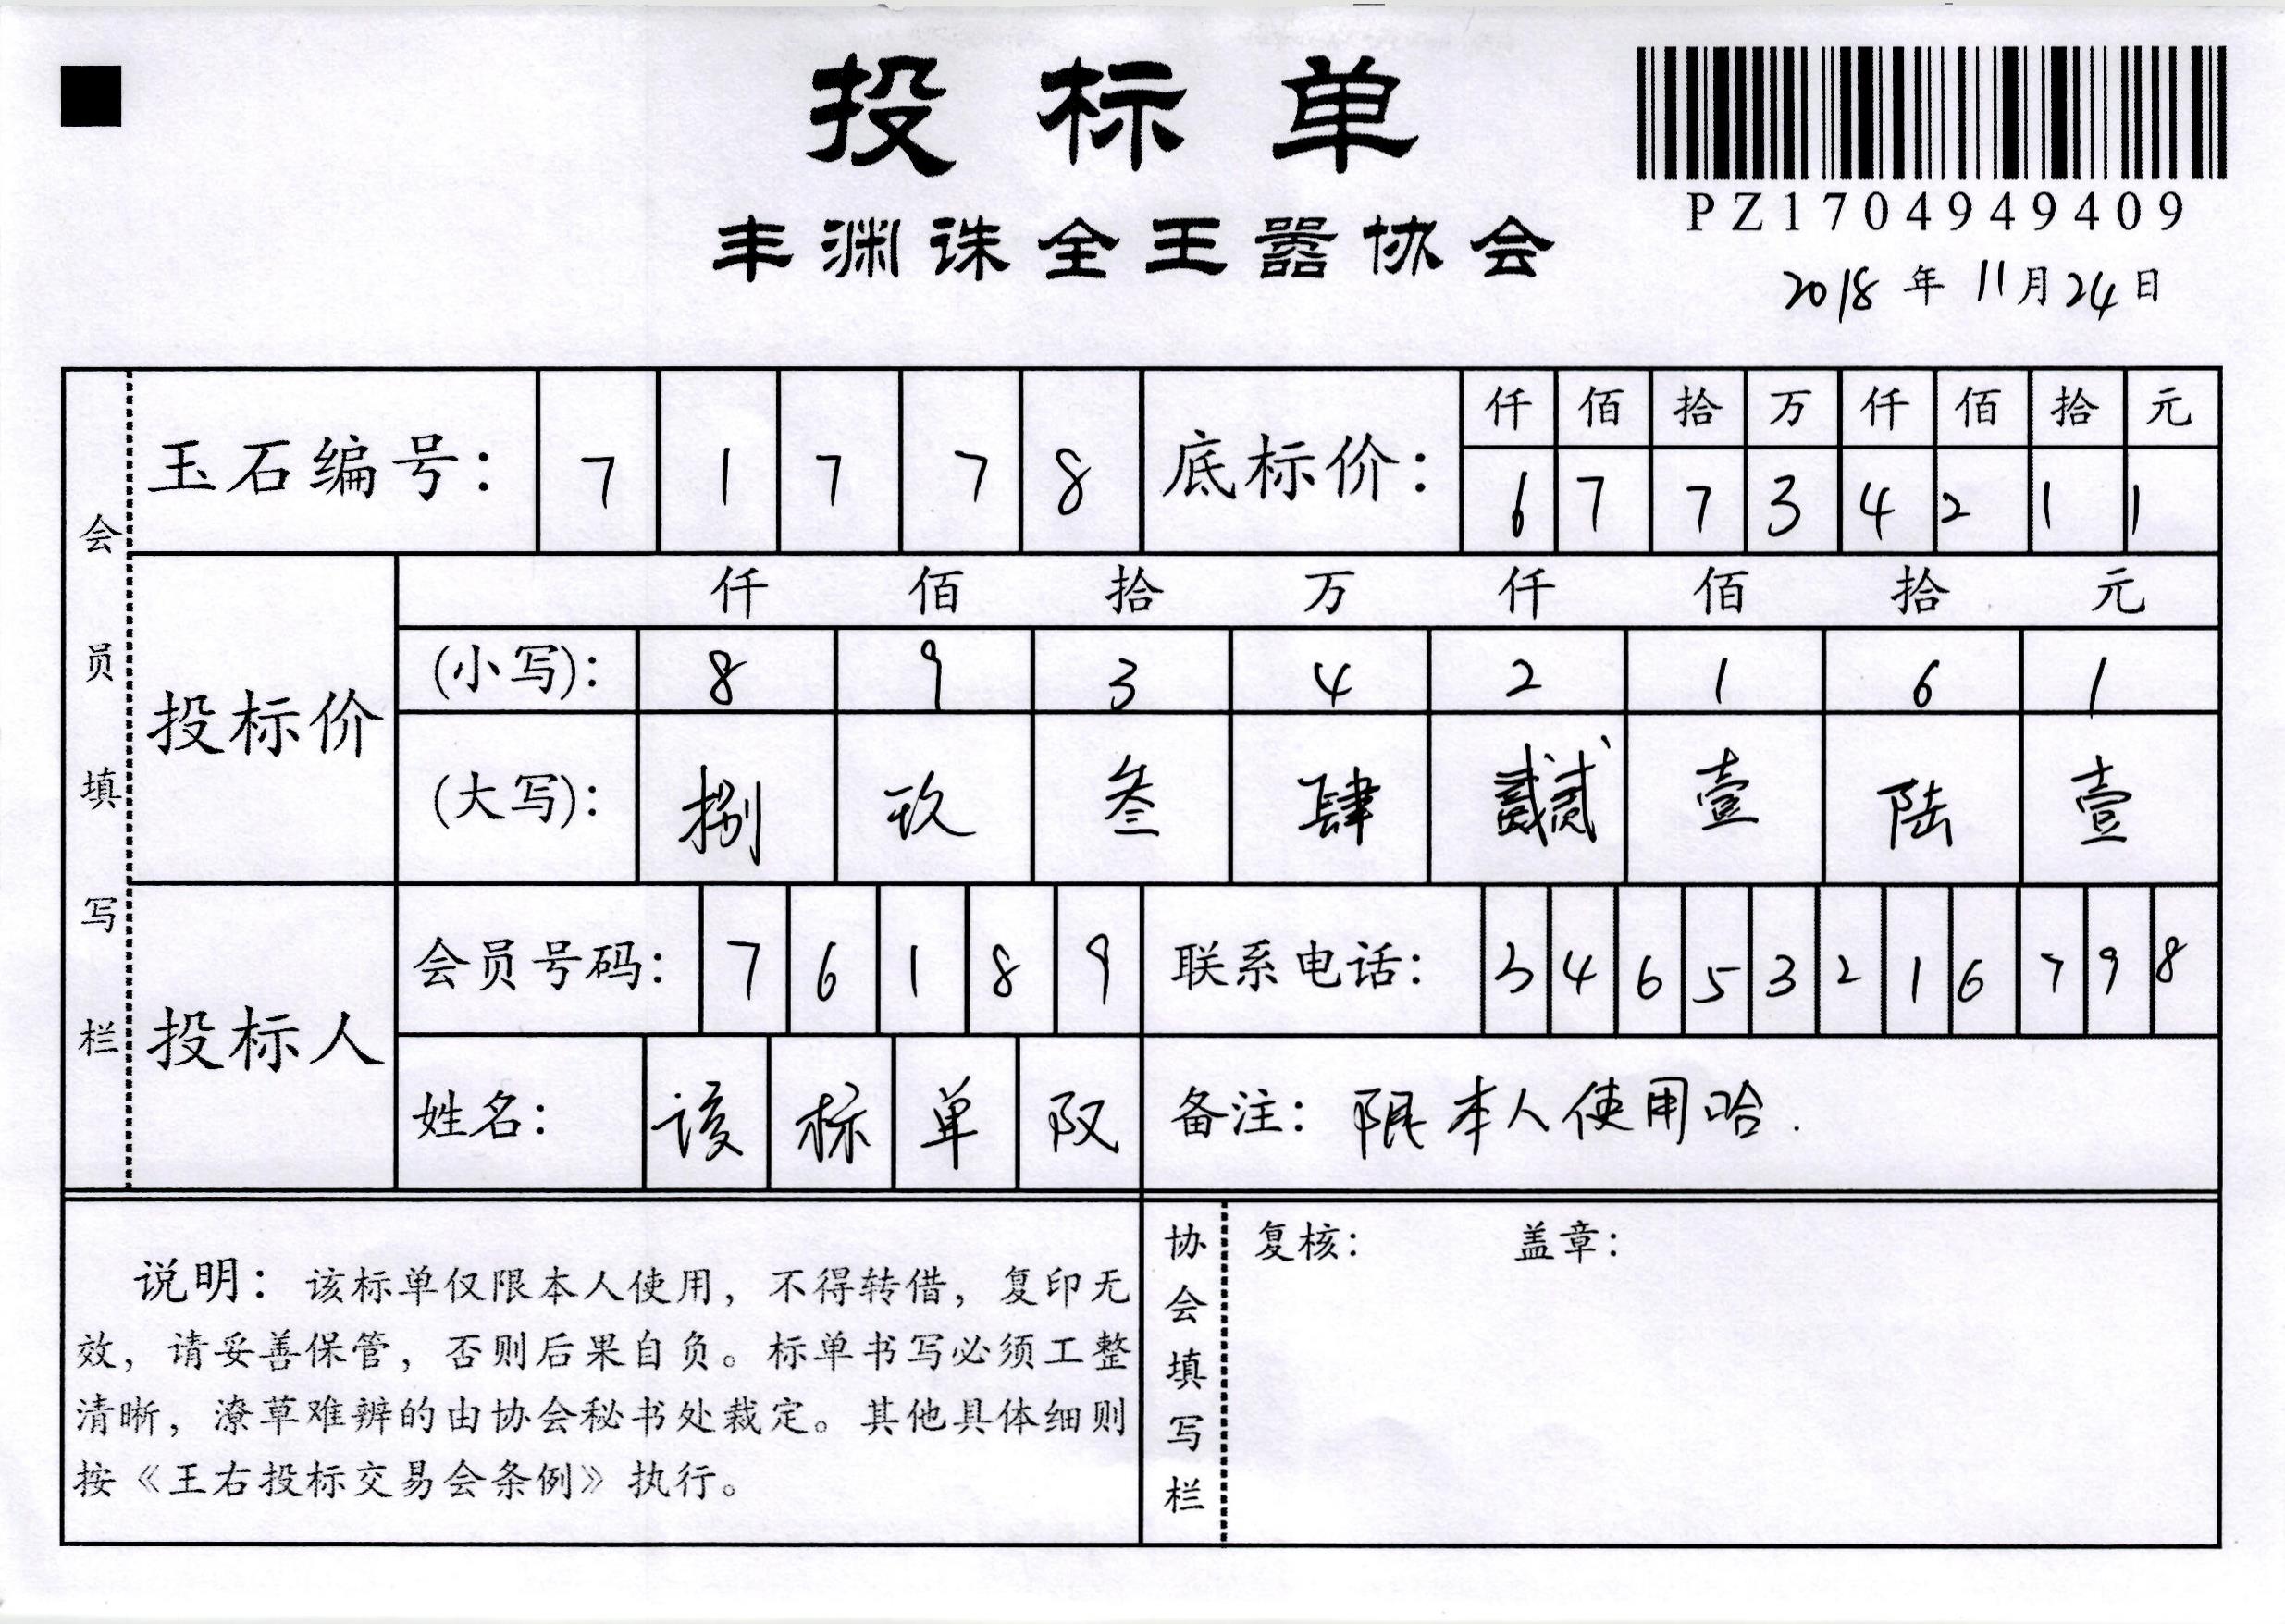 投标单
PZ1704949409
丰渊诛全王嚣协会
2018年11月24日
会员填写栏
玉石编号: 7 1 7 7 8
底标价: 仟 佰 拾 万 仟 佰 拾 元
6 7 7 3 4 2 1 1
投标价
仟 佰 拾 万 仟 佰 拾 元
(小写): 8 9 3 4 2 1 6 1
(大写): 捌 玖 叁 肆 贰 壹 陆 壹
投标人
会员号码: 7 6 1 8 9
联系电话: 3 4 6 5 3 2 1 6 7 9 8
姓名: 该 标 单 仅
备注: 限本人使用哈.
说明: 该标单仅限本人使用, 不得转借, 复印无
效, 请妥善保管, 否则后果自负。标单书写必须工整
清晰, 潦草难辨的由协会秘书处裁定。其他具体细则
按《王右投标交易会条例》执行。
协会填写栏
复核: 盖章: